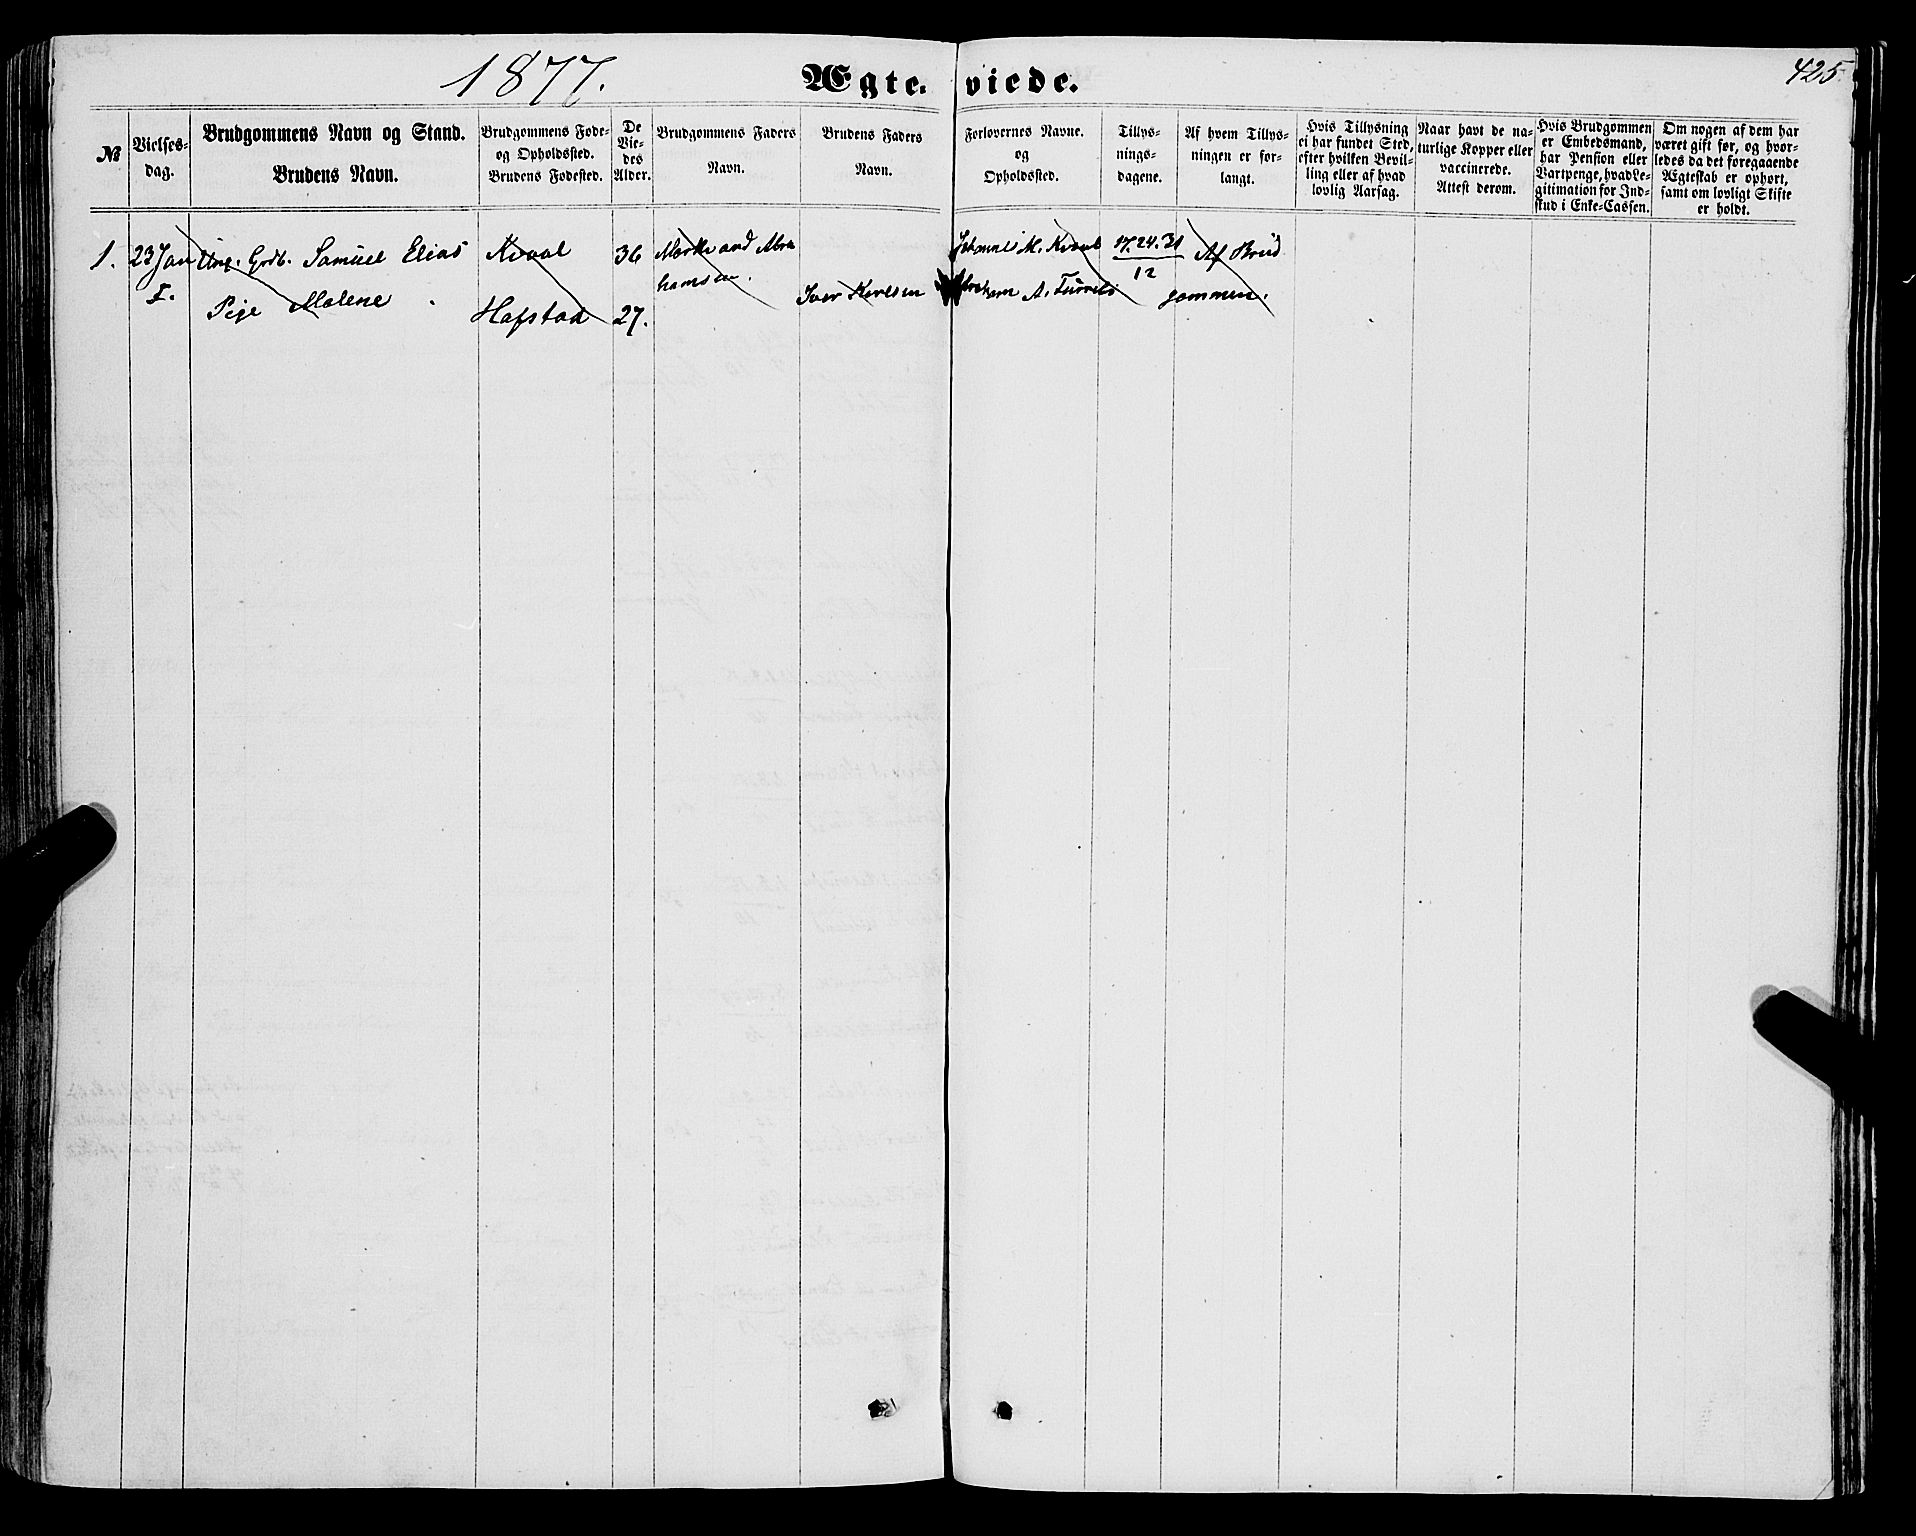 1877.
Ægte-viede.
425
№
Vielses-
dag.
Brudgommens Navn og Stand.
Brudens Navn.
Brudgommens Føde-
og Opholdssted.
Brudens Fødested.
De
Vie-
des
Alder.
Brudgommens Faders
Navn.
Brudens Faders
Navn.
Forlovernes Navne.
og
Opholdssted.
Tillys-
nings-
dagene.
Af hvem Tillys-
ningen er for-
langt.
Hvis Tillysning
ei har fundet Sted,
efter hvilken Bevil-
ling eller af hvad
lovlig Aarsag.
Naar havt de na-
turlige Kopper eller
vaccinerede.
Attest derom.
Hvis Brudgommen
er Embedsmand,
har Pension eller
Vartpenge, hvad Le-
gitimation for Ind-
skud i Enke-Cassen.
Om nogen af dem har
været gift før, og hvor-
ledes da det foregaaende
Ægteskab er ophørt,
samt om lovligt Skifte
er holdt.
1.
23 Jan
I.
Ung. Grdb. Samuel Elias
Pige Malene
Kvaal
Hafstad
36
27.
Abra
hamsen.
Iver
Johannes M. Kvaal
Abraham A.
17.24.31
12
Af Brud
gommen.